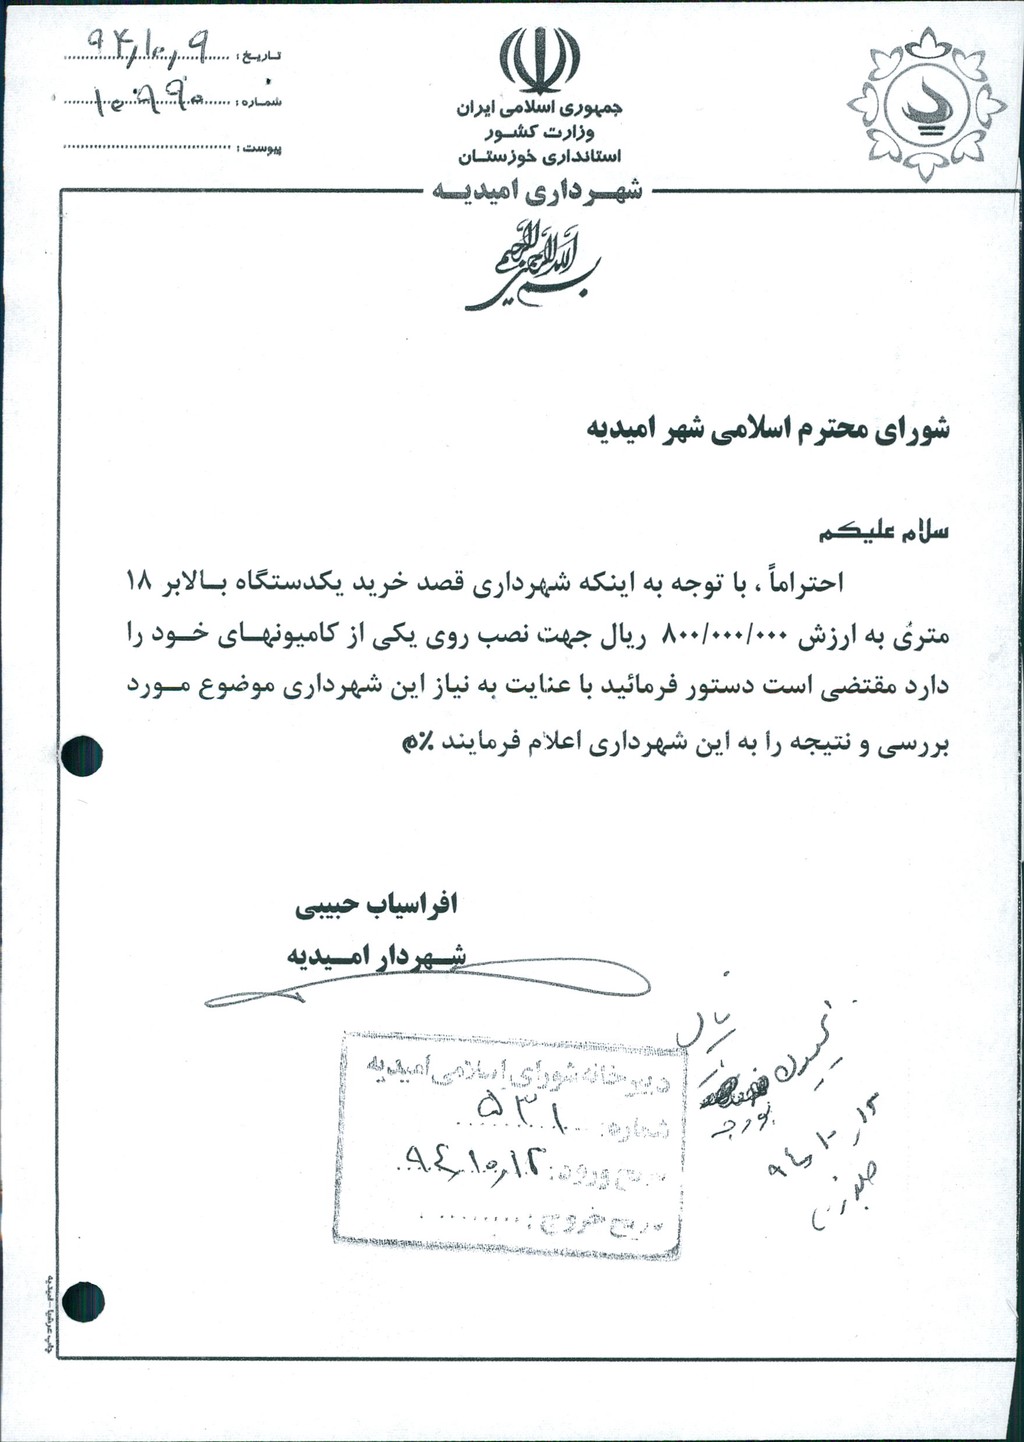 جمهوری اسلامی ایران
وزارت کشـور
استانداری خوزستـان
شهـــرداری امیدیــه
تاریخ : ۹۴٫۱۰٫۹
شمـاره : ۱۰۹۹۰
پیوست :
بسم الله الرحمن الرحیم
شورای محترم اسلامی شهر امیدیه
سلام علیکم
احتراماً ، با توجه به اینکه شهرداری قصد خرید یکدستگاه بـالابر ۱۸
متری به ارزش ۸۰۰/۰۰۰/۰۰۰ ریال جهت نصب روی یکی از کامیونهـای خـود را
دارد مقتضی است دستور فرمائید با عنایت به نیاز این شهرداری موضوع مـورد
بررسی و نتیجه را به این شهرداری اعلام فرمایند ٪م
افراسیاب حبیبی
شـهردار امـیدیه
دبیرخانه شورای اسلامی امیدیه
شماره: ۵۳۱
ورود: ۹۴٫۱۰٫۱۲
خروج :
کمیسیون
بودجه
چاپ عرشیا - امیدیه